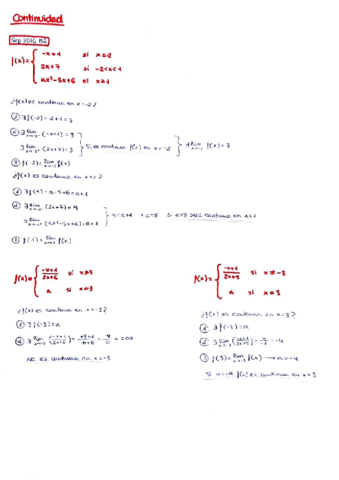 Continuidad
Sep 2016 B2
f(x)= { -x+1 si x≤-2
2x+7 si -2<x<1
ax²-5x+6 si x≥1
¿f(x) es continua en x=-2?
① ∃f(-2)=2+1=3
② ∃lim -(-x+1)=3
∃lim (2x+7)=3 } Si, es continua f(x) en x=-2 } ∃lim f(x)=3
③ f(-2)=lim f(x)
¿f(x) es continua en x=1?
① ∃f(1)=a-5+6=a+1
② ∃lim (2x+7)=9
∃lim (ax²-5x+6)=a+1 } 9=a+1 → a=8 si a=8 será continua en x=1
③ f(1)=lim f(x)
f(x)= { -x+1/2x+6 si x≠3
a si x=3
¿f(x) es continua en x=-3?
① ∃f(-3)=a
② ∃lim (-x+1/2x+6)= +3+1/-6+6 = 4/0 = ±∞
No es continua en x=-3
f(x)= { -x+1/2x+5 si x≠-3
a si x=3
¿f(x) es continua en x=-3?
① ∃f(-3)=a
② ∃lim (-x+1/2x+5)= 4/-1 = -4
③ f(3)=lim f(x) → a=-4
Si a=-4 f(x) es continua en x=3